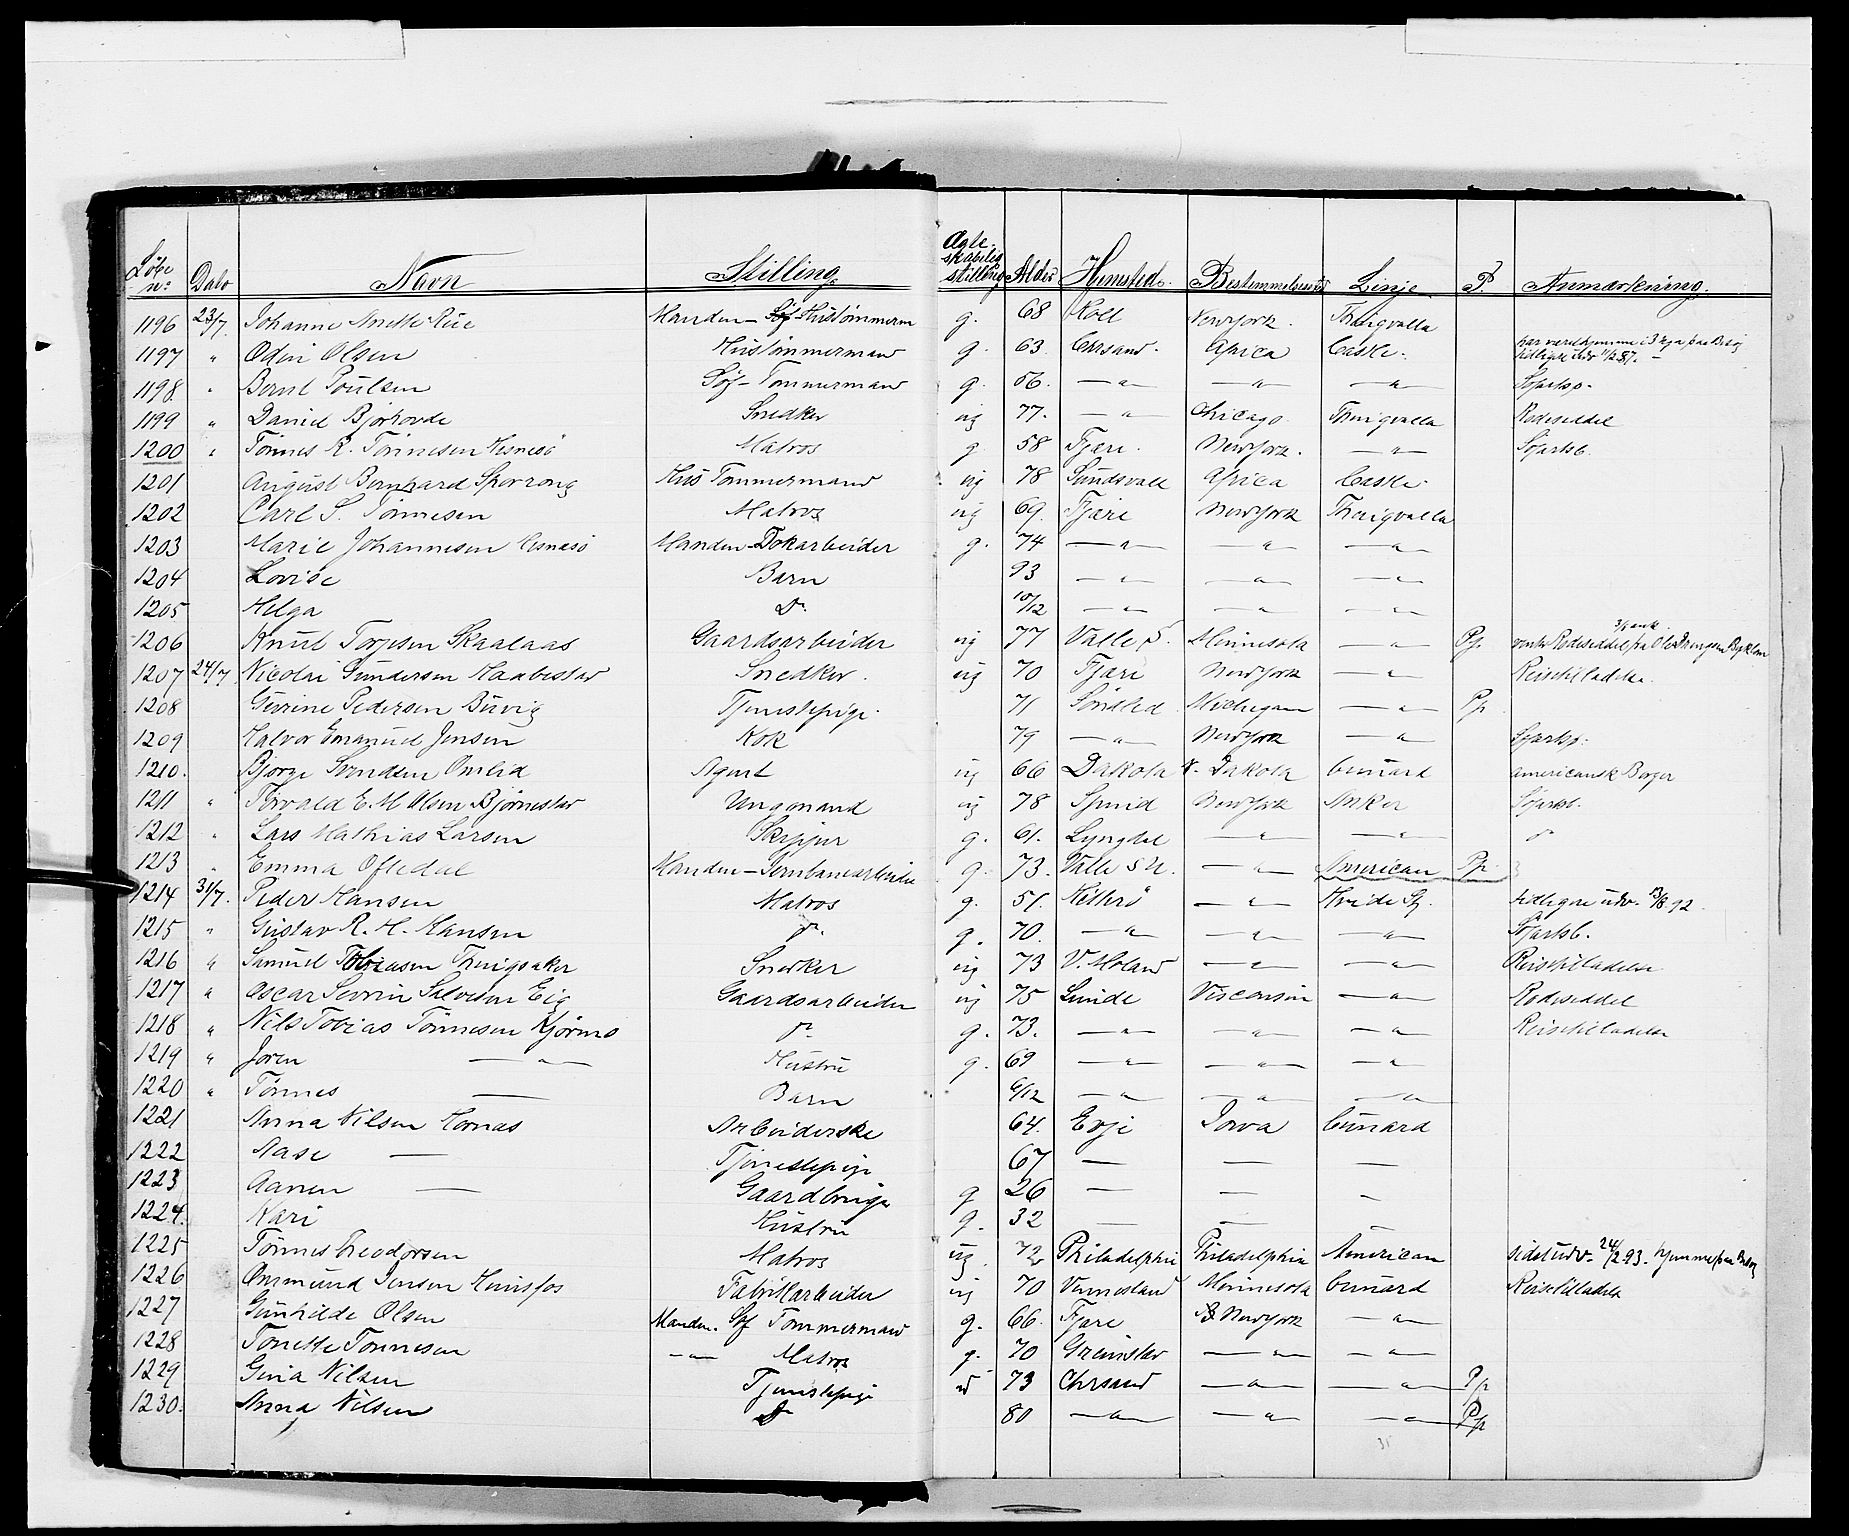 Løbe n: Dato Navn Stilling. Ægteskabelig stilling Alder Hjemsted. Bestemmelsessted Linje P. Anmærkning.
1196 23/7. Johanne Anette Rue Manden - Hustømmerm g. 68 Newyork. Thingvalla
1197 " Odin Olsen Hustømmermand g. 63 Chrsand. Africa Castle.
1198 " Bernt Poulsen Søf-Tømmermand g. 56. —"— —"— —"—
1199 " Daniel Bjørhovde Snedker ug 77. —"— Chicago Thingvalla Rodeseddel
1200 " Tønnes R. Tønnesen Hesnesø Matros g 58 Fjære. Newyork. —"—
1201 August Bernhard Sporrong Hus Tømmermand ug 78 Sundsvall Africa Castle.
1202 Carl S. Tønnesen Matros ug 69. Fjære Newyork Thingvalla
1203 Marie Johannesen Hesnesø Manden-Dokarbeider g. 74 —"— —"— —"—
1204 Lovise Barn 93 —"— —"— —"—
1205 Helga Do 10/12 —"— —"— —"—
1206 Knut Torjesen Skaalaas Gaardsarbeider ug 77 Valle S. Minnesota —"— Pp.
1207 24/7 Nicolai Gundersen Haabestad Snedker. ug 70 Fjære Newyork —"— Reisetilladelse.
1208 Gurine Pedersen Buvig Tjenestepige. 71 Søndled Michigan —"— Pp.
1209 Halvor Emanuel Jensen Kok 79 —"— Newyork —"—
1210. Bjorge Svendsen Omlid Agent ug 66 Dakota N. Dakota Cunard americansk Borger
1211 " Torvald E. M. Olsen Bjørnestad Ungmand ug 78 Newyork Anker
1212 " Lars Mathias Larsen Skipper g. 61. Lyngdal —"— —"— do
1213 " Emma Oftedal Manden-Jernbanearbeider g. 73. Valle —"— American Pp.
1214 31/7. Peder Hansen Matros g. 51. Hitterø —"— tidligere udv. 13/8 92
1215 " Gustav R. H. Hansen do. g. 70. —"— —"— —"—
1216 " Samuel Tobiasen Thingsaker Snedker ug 73 V. Moland —"— —"— Reisetilladelse
1217 " Oscar Severin Salvesen Eig Gaardsarbeider ug 75 Lunde Visconsin —"— Rodeseddel
1218 " Nils Tobias Tønnesen Kjørmo do g. 73. —"— —"— —"— Reisetilladelse
1219 " Joren —"— Hustru g. 69 —"— —"— —"—
1220 " Tønnes — Barn 9/12 —"— —"— —"—
1221 Anna Nilsen Hornas Arbeiderske 64. Evje Iowa Cunard
1222 Aase — Tjenestepige 67 — — —
1223 Aanen — Gaardbruger g 26 — — —
1224. Kari Hustru g. 32 — — —
1225 Tønnes Theodorsen Matros ug. 72 Philadelphia Philadelphia American sidst udv. 24/2 93. hjemme paa Besøg
1226 Omund Jensen Hunsfos Fabrikarbeider ug 70 Vennesland Minnesota Cunard Reisetilladelse
1227 Gunhilde Olsen Manden. Søf Tømmermand g. 66. Fjære Newyork —"—
1228 Tonette Tønnesen —"— Matros g. 70 Grimstad —"— —"—
1229 Gina Nilsen Tjenestepige 73 Chrsand —"— —"— Pp
1230. Anna Nilsen Do 80 —"— —"— —"— Pp